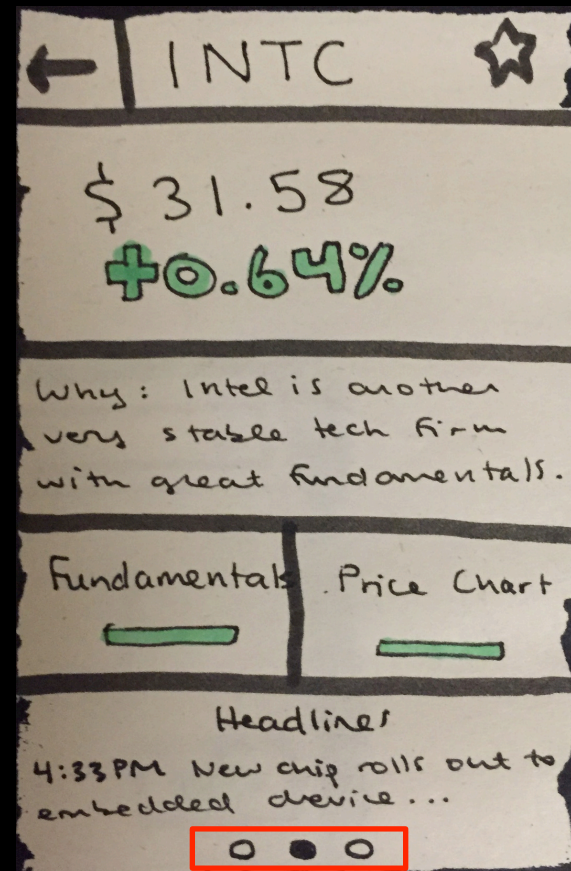 INTC
$31.58
+0.64%
Why: Intel is another
very stable tech firm
with great fundamentals.
Fundamentals
Price Chart
Headlines
4:33PM New chip rolls out to
embedded device...